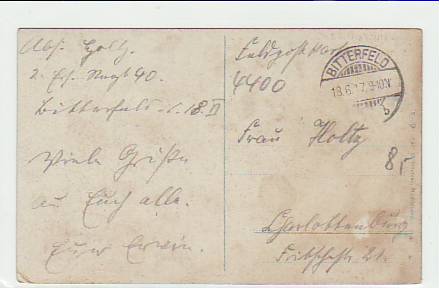 Abs. Holtz
2. Ers. Regt 40.
Bitterfeld 18. VI
Viele Grüße
an Euch alle.
Euer Erwin.
Feldpostkarte
4400
BITTERFELD
18.6.17.9-10V
b
Frau Holtz
8,-
Charlottenburg
Fritschestr 21.